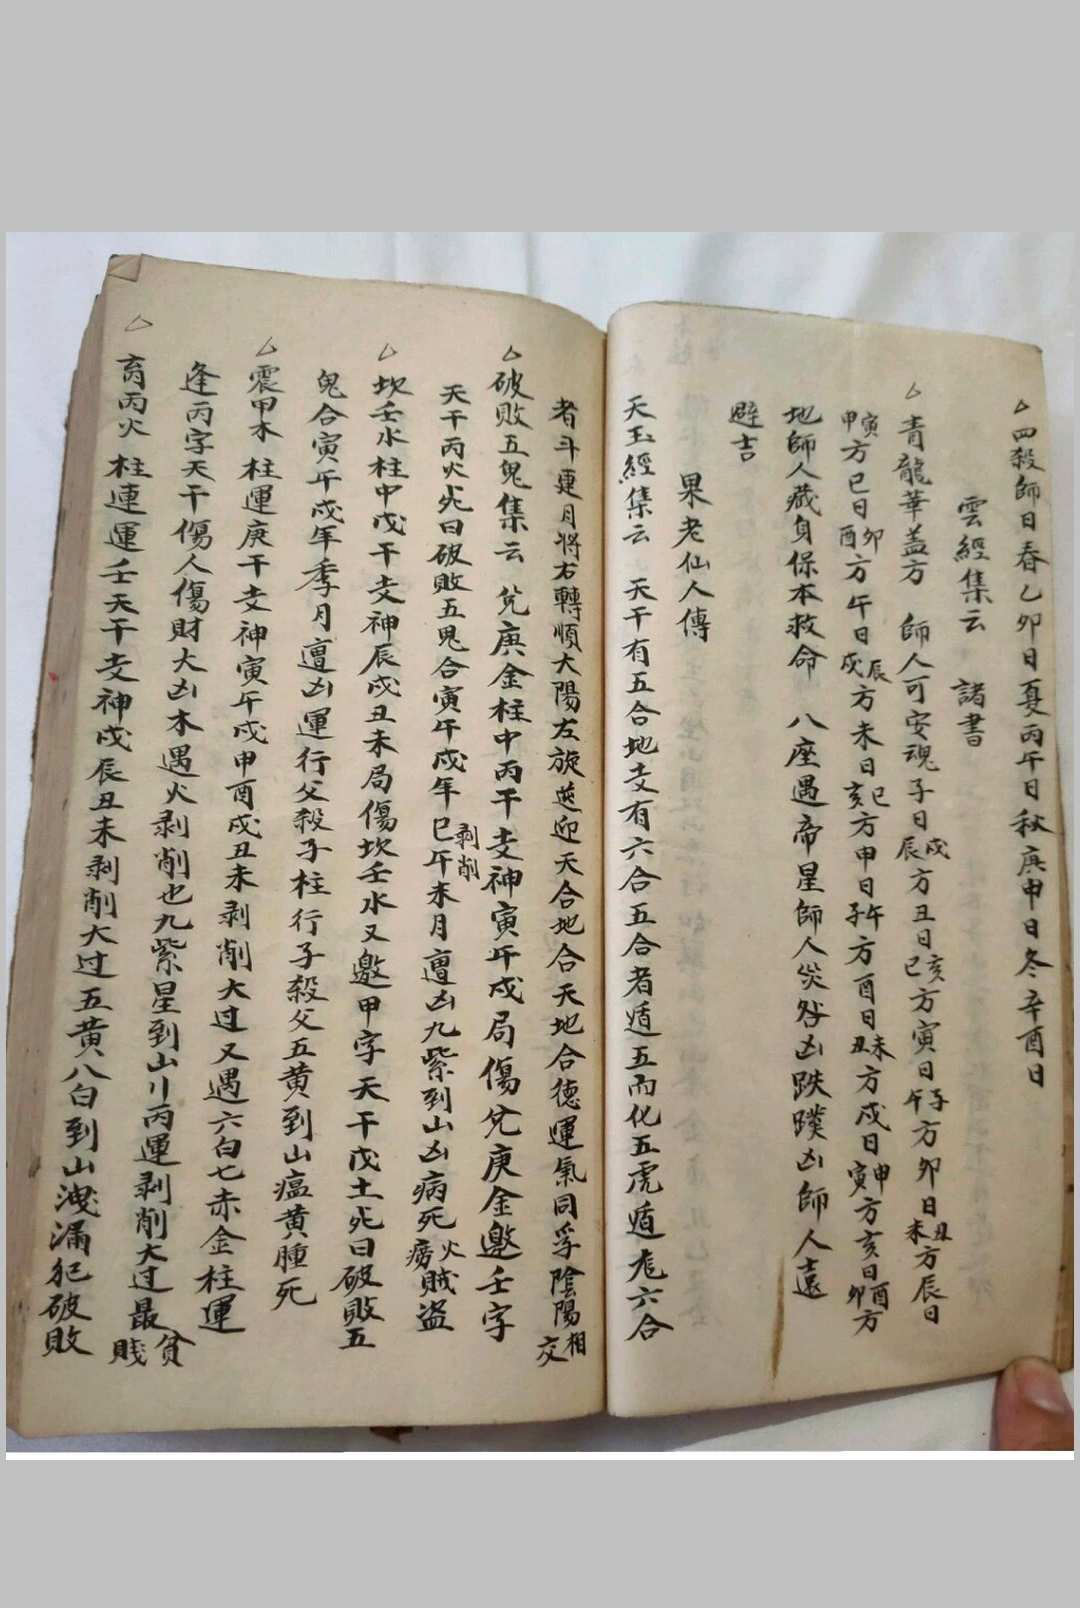 △四殺師日春乙卯日夏丙午日秋庚申日冬辛酉日
雲經集云　諸書
△青龍華盖方　師人可安魂子日戌辰方丑日亥巳方寅日子午方卯日丑未方辰日
寅申方巳日卯酉方午日辰戌方未日巳亥方申日午子方酉日未丑方戌日申寅方亥日酉卯方
地師人藏身保本救命　八座遇帝星師人災咎凶跌蹼凶師人遠
避吉
果老仙人傳
天玉經集云　天干有五合地支有六合五合者遁五而化五虎遁尨六合
者斗建月將右轉順大陽左旋逆迎天合地合天地合德運氣同孚陰陽相交
△破敗五鬼集云　兌庚金柱中丙干支神寅午戌局傷兌庚金邀壬字
天干丙火圥曰破敗五鬼合寅午戌年巳午未月剥削遭凶九紫到山凶病死火癆賊盗
△坎壬水柱中戊干支神辰戌丑未局傷坎壬水又邀甲字天干戊土圥曰破敗五
鬼合寅午戌年季月遭凶運行父殺子柱行子殺父五黄到山瘟黄腫死
△震甲木柱運庚干支神寅午戌申酉戌丑未剥削大过又遇六白七赤金柱運
逢丙字天干傷人傷財大凶木遇火剥削也九紫星到山川丙運剥削大过最貧賤
△亥丙火柱連運壬天干支神戌辰丑未剥削大过五黄八白到山洩漏犯破敗